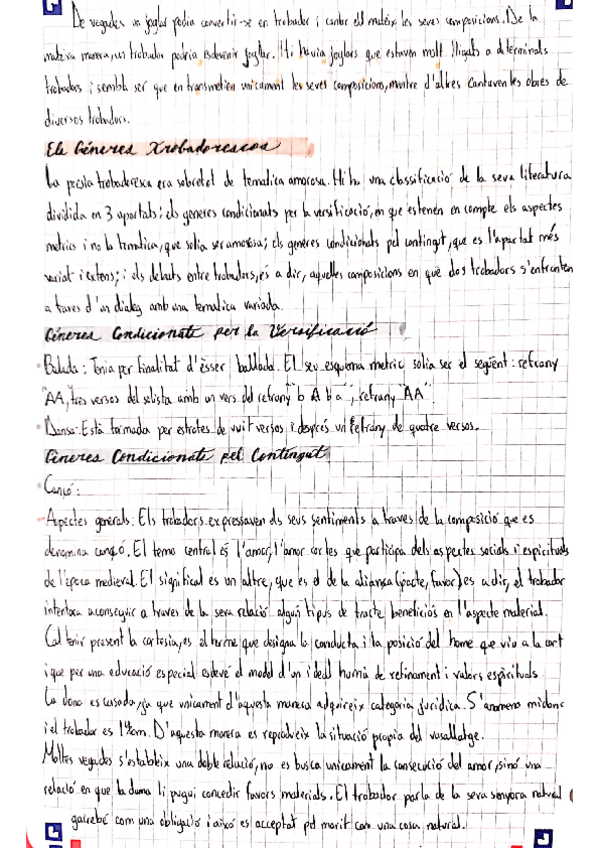 De vegades un joglar podia convertir-se en trobador i cantar ell mateix les seves composicions. De la
mateixa manera, un trobador podria esdevenir joglar. Hi havia joglars que estaven molt lligats a determinats
trobadors i sembla ser que en transmetien unicament les seves composicions, mentre d'altres cantaven les obres de
diversos trobadors.
Els Gèneres Trobadorescos
La poesia trobadoresca era sobretot de tematica amorosa. Hi ha una classificació de la seva literatura
dividida en 3 apartats: els generes condicionats per la versificació, en que es tenen en compte els aspectes
metrics i no la tematica, que solia ser amorosa; els generes condicionats pel contingut, que es l'apartat més
variat i extens; i els debats entre trobadors, és a dir, aquelles composicions en què dos trobadors s'enfronten
a traves d'un dialeg amb una tematica variada.
Gèneres Condicionats per la Versificació
Balada: Tenia per finalitat d'ésser ballada. El seu esquema metric solia ser el següent: refrany
"AA", tres versos del solista amb un vers del refrany "b A b a", refrany "AA".
Dansa: Està formada per estrofes de vuit versos i després un refrany de quatre versos.
Gèneres Condicionats pel Contingut
Cançó:
Aspectes generals: Els trobadors expressaven els seus sentiments a traves de la composició que es
denomina cançó. El tema central és l'amor, l'amor cortes que participa dels aspectes socials i espirituals
de l'època medieval. El significat és un altre, que és el de la aliança (pacte, favor) es a dir, el trobador
intentava aconseguir a traves de la seva relació algun tipus de tracte beneficiós en l'aspecte material.
Cal tenir present la cortesia, es el terme que designa la conducta i la posició del home que viu a la cort
i que per una educació especial esdevé el model d'un ideal humà de refinament i valors espirituals
La dona es casada, ja que unicament d'aquesta manera adquireix categoria juridica. S'anomena midons
i el trobador es l'Hom. D'aquesta manera es reprodueix la situació propia del vasallatge.
Moltes vegades s'estableix una doble relació, no es busca unicament la consecució del amor, sinó una
relació en que la dama li pugui concedir favors materials. El trobador parla de la seva senyora natural
gairebé com una obligació i això es acceptat pel marit com una cosa natural.